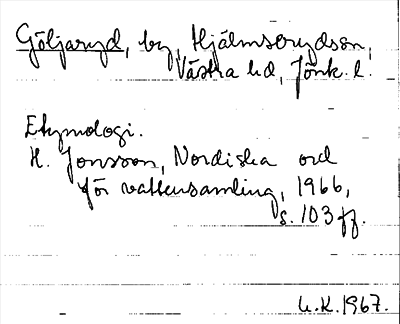 Göljaryd, by, Hjälmserydssn,
Västra hd, Jönk. l.
Etymologi.
H. Jonsson, Nordiska ord
för vattensamling, 1966,
s. 103 ff.
U.K. 1967.